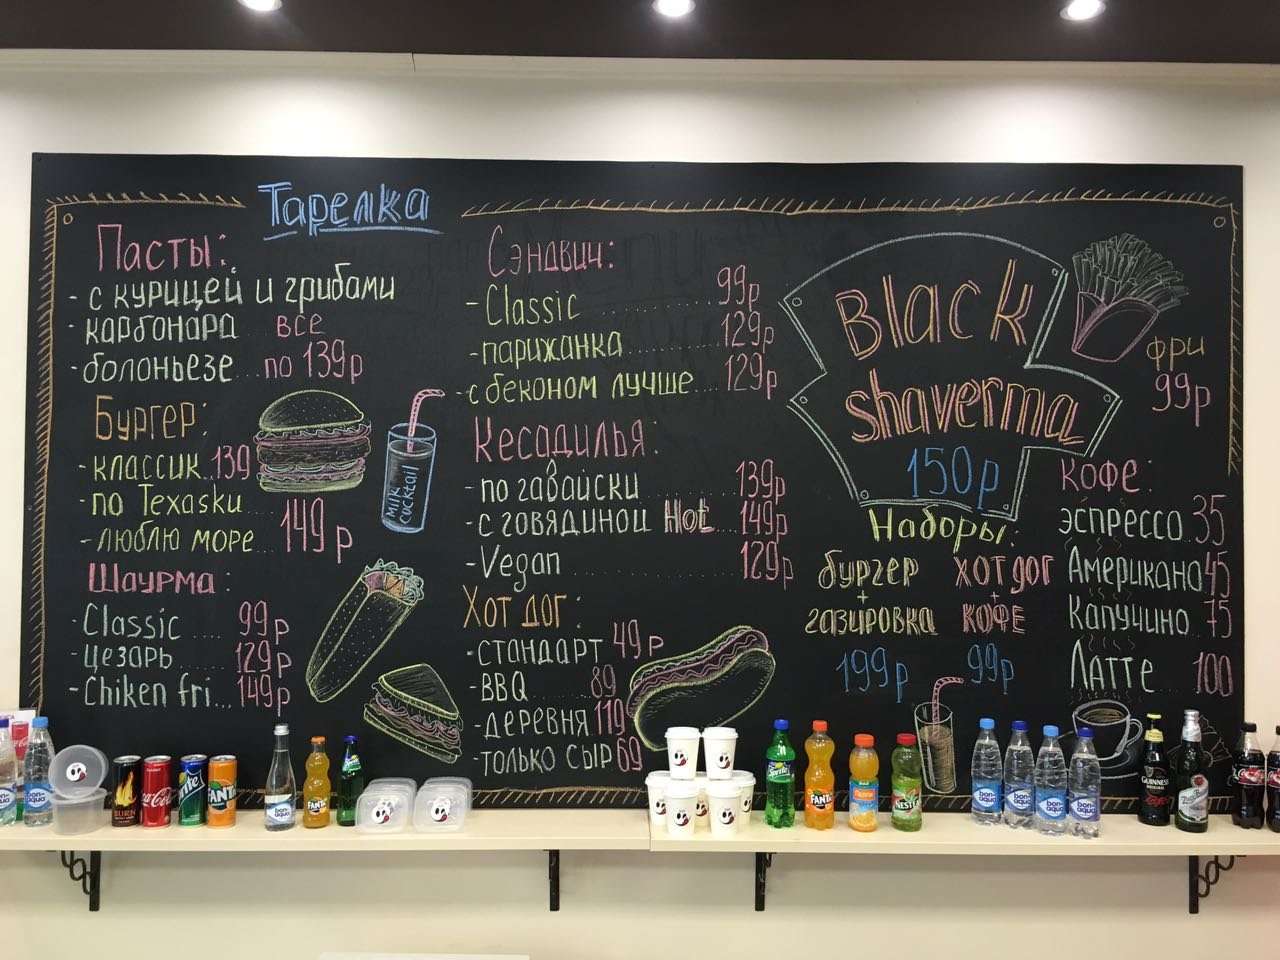 Тарелка
Пасты:
- с курицей и грибами
- карбонара все
- болоньезе....по 139р
Бургер:
- классик..139
- по Texasku
- люблю море....149р
Шаурма:
- Classic.... 99р
- цезарь..... 129р
- Chiken fri...149р
Milk
cocktail
Сэндвич:
- Classic ........ 99р
- парижанка ........ 129р
- с беконом лучше....129р
Кесадилья:
- по гавайски ........ 139р
- с говядиной Hot ...149р
- Vegan ........ 129р
Хот дог:
- стандарт 49р
- BBQ ..... 89
- деревня 119
- только сыр 69
Black
shaverma
150р
фри
99р
Наборы:
бургер
+
газировка
199р
хот дог
+
кофе
99р
Кофе:
эспрессо 35
Американо 45
Капучино..75
Латте.... 100
BURN
Coca-Cola
Sprite
FANTA
bon-aqua
FANTA
Sprite
Sprite
FANTA
NESTEA
bon-aqua
bon-aqua
bon-aqua
bon-aqua
GUINNESS
Coca-Cola